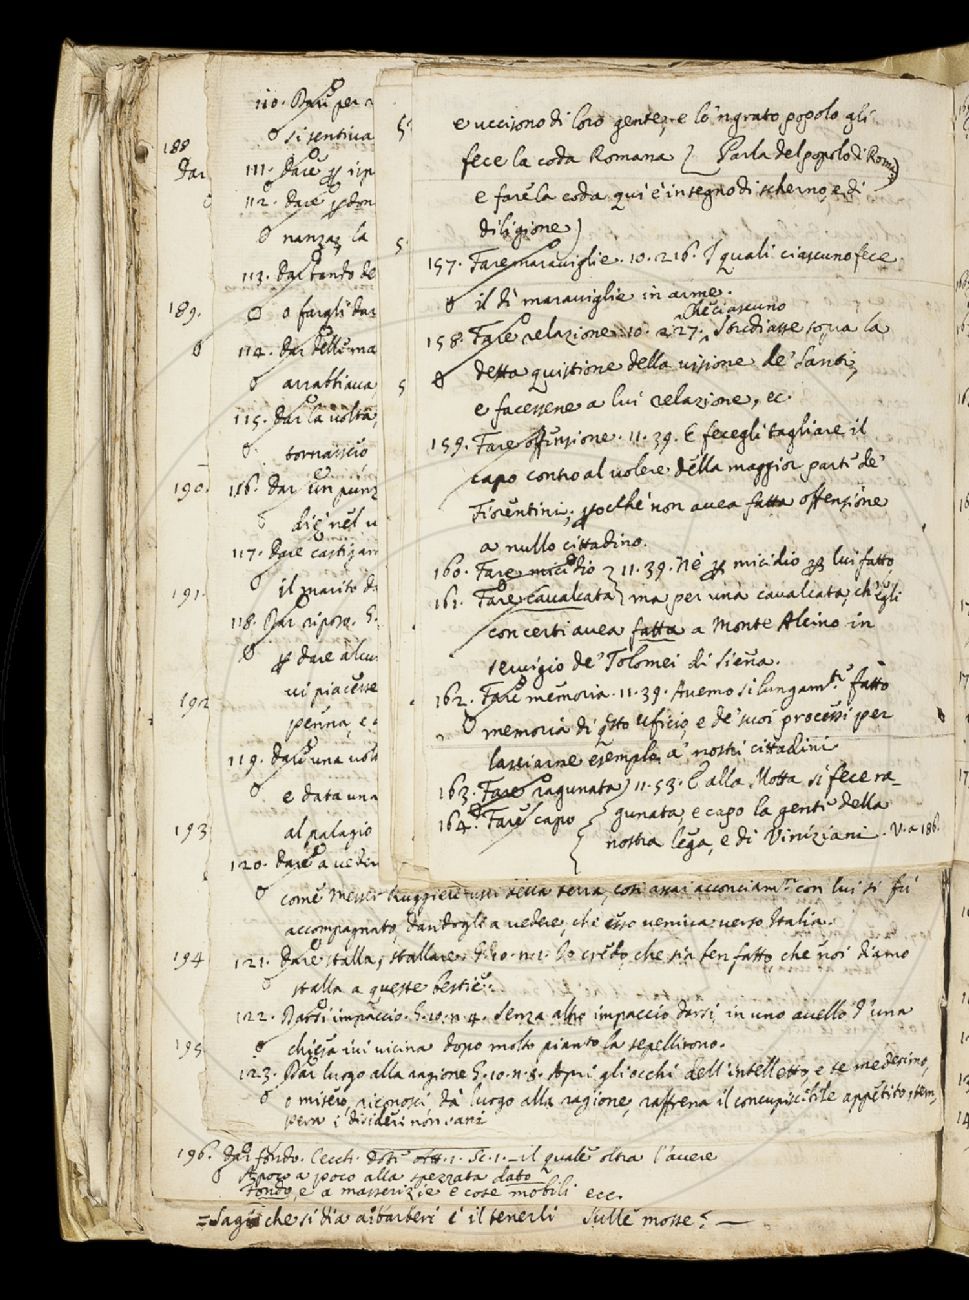 188
dar
189.
190.
191.
192
193
194
195
196.
110. Dare per
si sentiva
111. dare
112. dare
nanza, la
113. dar bando de
o fargli dar
114. dar delle ma
arrabbiava
115. dar la volta,
tornassero
116. dar un punz
diè nel
117. dare castigam
il marito d
118. Dar riposo. G.
dare alcun
vi piacesse
penna, e
119. dare una volt
e data una
al palagio
120. dare a veder
come messer Ruggieri della terra, così assai acconciam.te con lui si fu
accompagnato, dandogli a vedere, che esso veniva verso Italia.
121. dare stalla, stallare. G. 10. n. 2. Io credo, che sia ben fatto che noi diamo
stalla a queste bestie.
122. Darsi impaccio. G. 10. n. 4. Senza altro impaccio darsi, in uno avello d'una
chiesa ivi vicina dopo molto pianto la sepellirono.
123. Dar luogo alla ragione G. 10. n. 8. Apri gli occhi dell'intelletto, e te medesimo,
o misero, riconosci dà luogo alla ragione, raffrena il concupiscibile appetito, tem,
pera i disideri non sani
dar fondo. Cecch. Dot. att. 1. sc. 1. _ il quale oltra l'avere
A poco a poco alla spezzata dato
Fondo, e a masserizie e cose mobili ecc.
= Saggi che si dia a i barberi è il tenerli sulle mosse? —
e uccisono di loro gente, e lo 'ngrato popolo gli
fece la coda Romana } Parla del popolo di Roma)
e fare la coda qui è in segno di scherno, e di
diligione)
157. Fare maraviglie. 10. 216. I quali ciascuno fece
il dì maraviglie in arme.
che ciascuno
158. Fare relazione. 10. 227. studiasse sopra la
detta quistione della visione de' Santi,
e facessene a lui relazione, ec.
159. Fare offensione. 11. 39. E fecegli tagliare il
capo contro al volere della maggior parte de'
Fiorentini, perocchè non avea fatta offensione
a nullo cittadino.
160. Fare micidio } 11. 39. Nè per micidio per lui fatto,
161. Fare cavalcata } ma per una cavalcata, ch'egli
con certi avea fatta a Monte Alcino in
servigio de' Tolomei di Siena.
162. Fare memoria. 11. 39. Avemo sì lungam.te fatto
memoria di questo uficio, e de' suoi processi per
lassiarne esemplo a' nostri cittadini
163. Fare ragunata } 11. 53. E alla Motta si fece ra-
164. Fare capo } gunata, e capo la gente della
nostra lega, e di Viniziani. V. a 186.